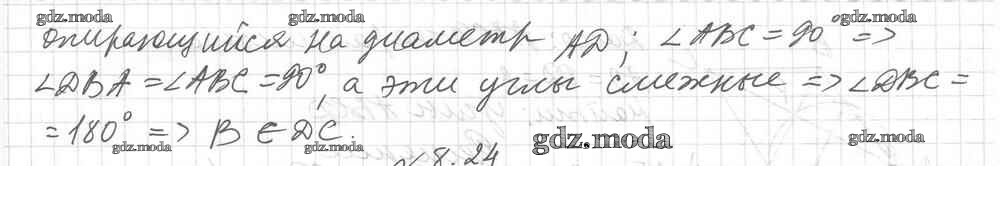 gdz.moda gdz.moda gdz.moda
опирающийся на диаметр AD; ∠ABC = 90° =>
∠DBA = ∠ABC = 90°, а эти углы смежные => ∠DBC =
= 180° => B ∈ DC.
gdz.moda gdz.moda gdz.moda gdz.moda
8.24